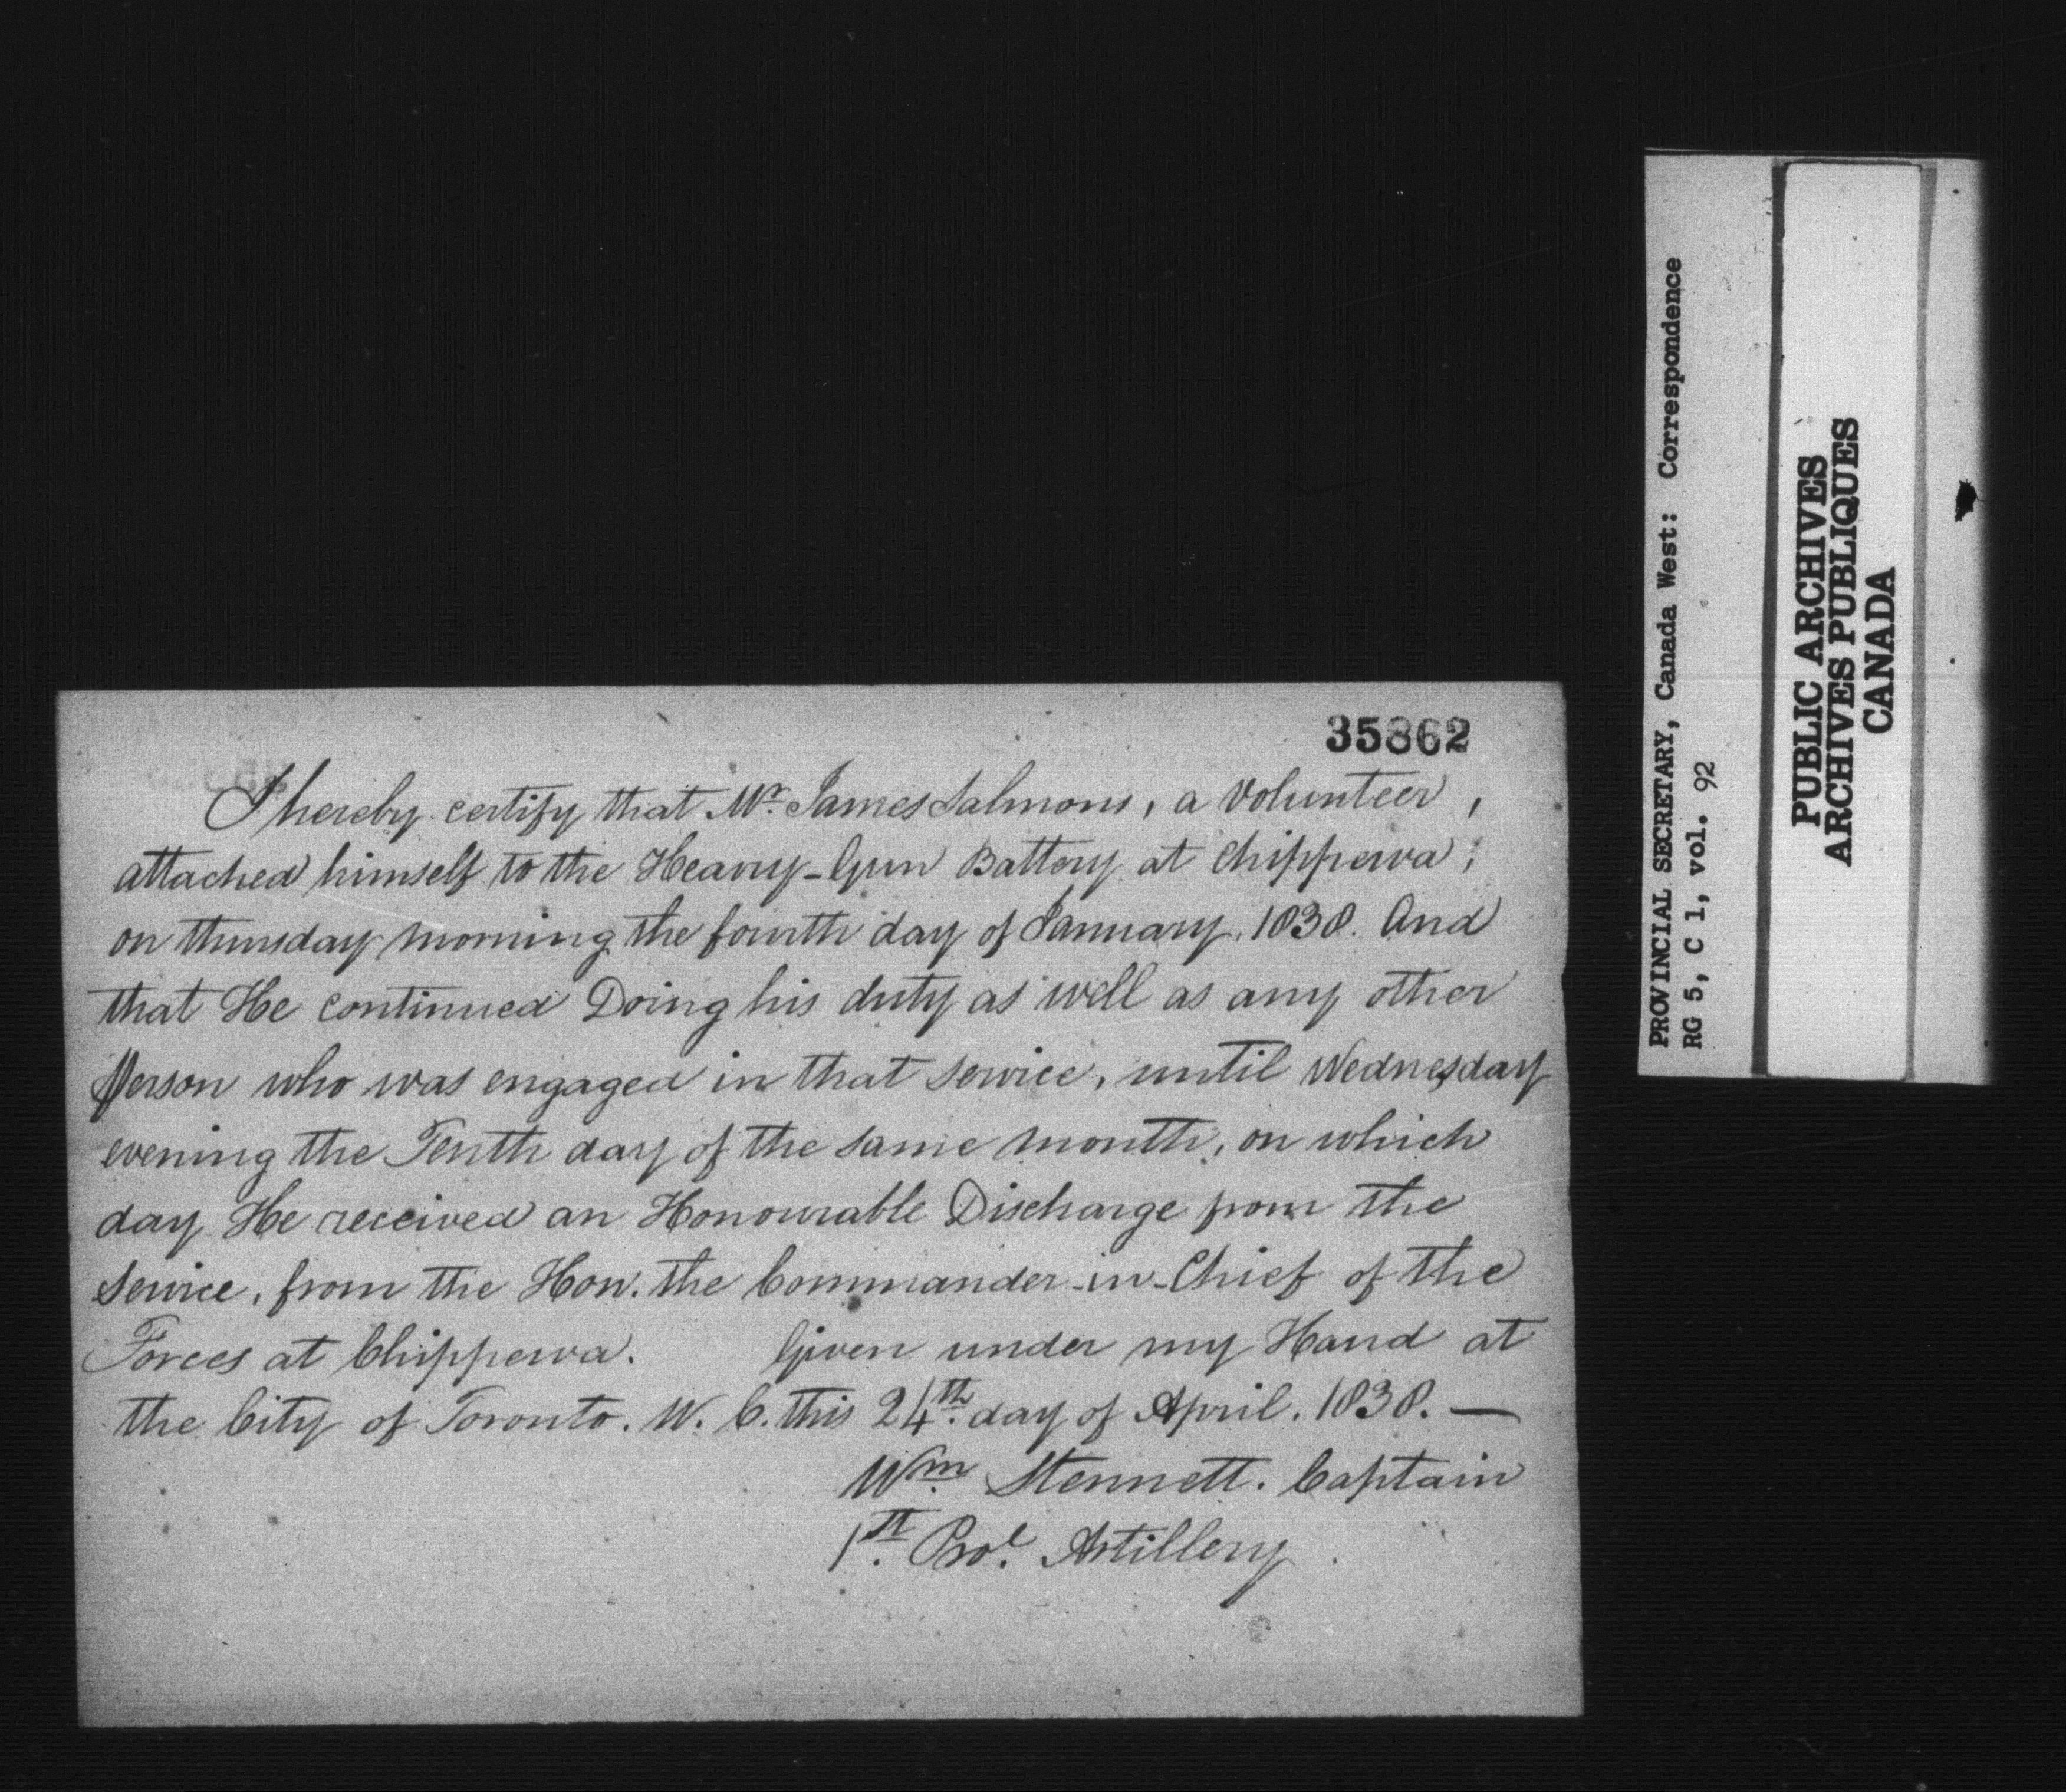 35862
I hereby certify that Mr. James Salmons, a Volunteer,
attached himself to the Heavy-Gun Battery at Chippewa;
on thursday morning the fourth day of January, 1838. And
that He continued Doing his duty as well as any other
Person who was engaged in that service, until Wednesday
evening the Tenth day of the same month, on which
day He received an Honourable Discharge from the
Service, from the Hon. the Commander-in-Chief of the
Forces at Chippewa. Given under my Hand at
the City of Toronto. W. C. this 24th. day of April. 1838. —
Wm. Stennett. Captain
1st. Prol. Artillery
PROVINCIAL SECRETARY, Canada West: Correspondence
RG 5, C 1, vol. 92
PUBLIC ARCHIVES
ARCHIVES PUBLIQUES
CANADA